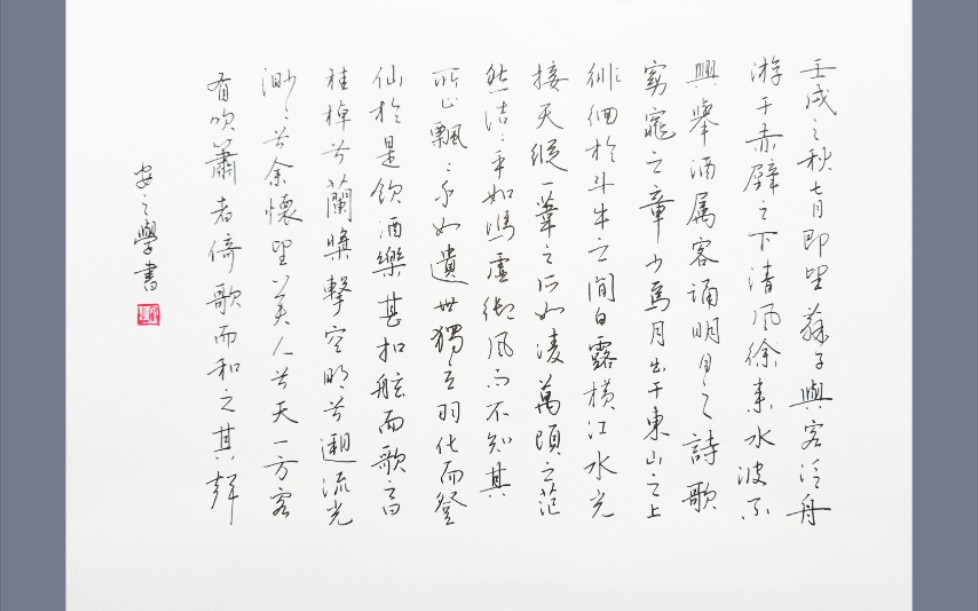 壬戌之秋七月即望蘇子與客泛舟
游于赤壁之下清風徐來水波不
興舉酒属客誦明月之詩歌
窈窕之章少焉月出于東山之上
徘徊於斗牛之間白露橫江水光
接天縱一葦之所如凌萬頃之茫
然浩〻乎如馮虛御風而不知其
所止飄〻乎如遺世獨立羽化而登
仙於是飲酒樂甚扣舷而歌之曰
桂棹兮蘭槳擊空明兮遡流光
渺〻兮余懷望美人兮天一方客
有吹簫者倚歌而和之其聲
安之學書